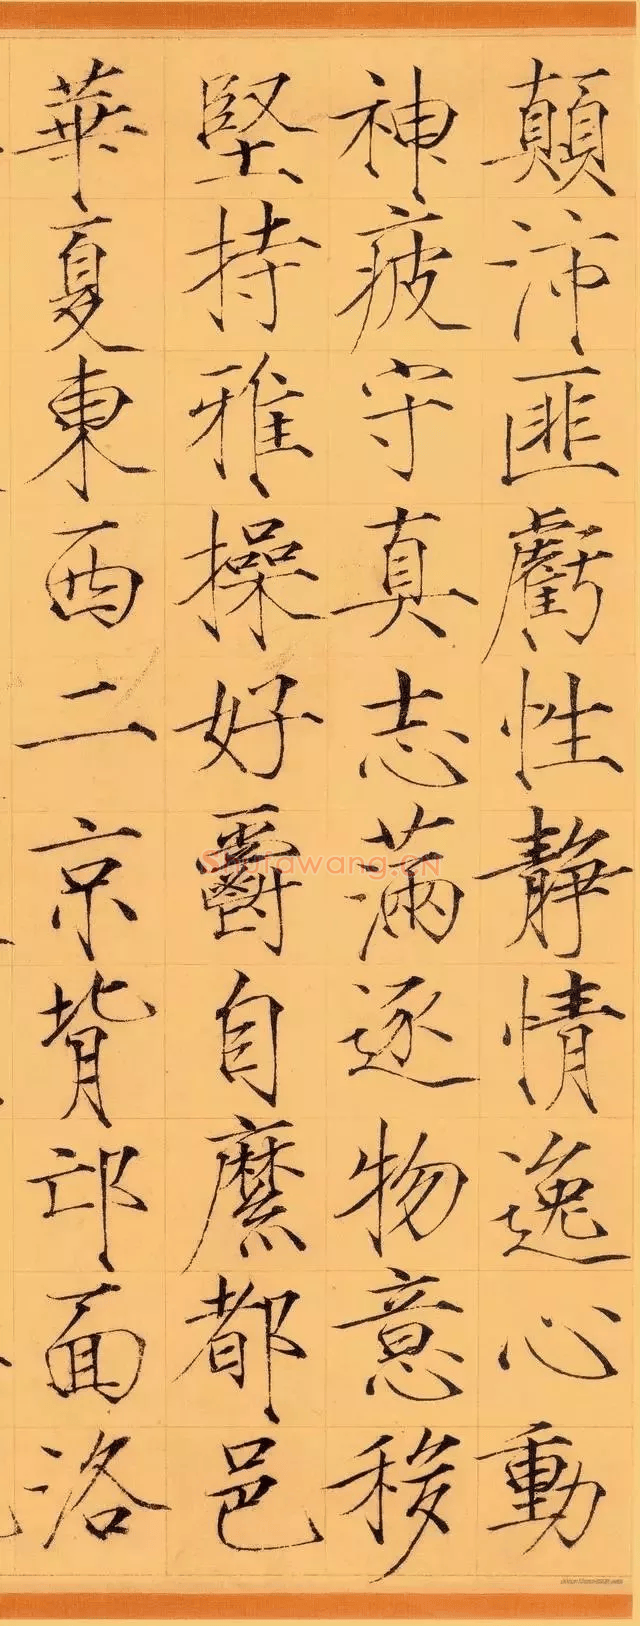 顛沛匪虧性靜情逸心動
神疲守真志滿逐物意移
堅持雅操好爵自縻都邑
華夏東西二京背邙面洛
Shufawang.cn